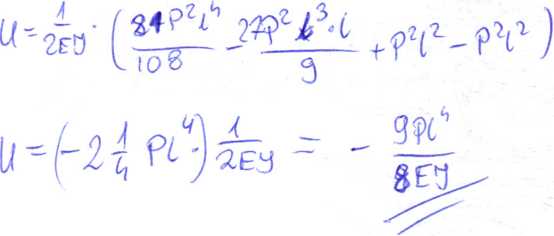 U = 1/2EJ · ( 81P²l⁴/108 - 27P²l³·l/9 + P²l² - P²l² )
U = (-2 1/4 Pl⁴·) 1/2EJ = - 9Pl⁴/8EJ